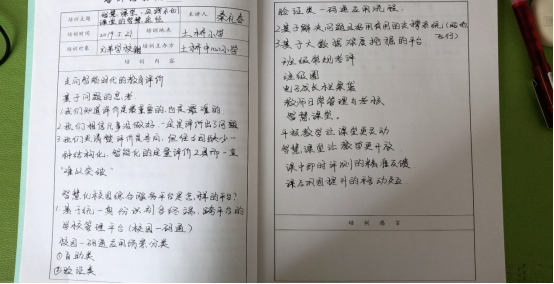 培训主题
智慧课堂，
课堂的智慧
主讲人
培训时间
2019.5.21
培训地点
土桥小学
培训对象
培训主办方
土桥中心小学
培训内容
走向智能时代的教育评价
基于问题的思考
1.我们知道评价是最重要的，也是最难的
2.我们相信凡事没做好，一定是评价出了问题
3.我们更清楚评价是导向，但经常因缺少一
种结构化、智能化的定量评价工具而一直
“难以突破”
智慧化校园综合服务平台是怎样的平台？
1.基于统一身份识别与终端，跨平台的
学校管理平台（校园一码通）
校园一码通应用场景分类
①自助类
②验证类
验证类一码通应用流程
2.基于解决问题且好用有用的支撑系统
3.基于大数据深度挖掘的平台
班级常规考评
班级圈
电子成长档案袋
教师日常管理与考核
智慧课堂。
平板教学让课堂更互动
智慧课堂让教学更开放
课中即时评测的精准反馈
课后巩固提升的移动交互
培训感言